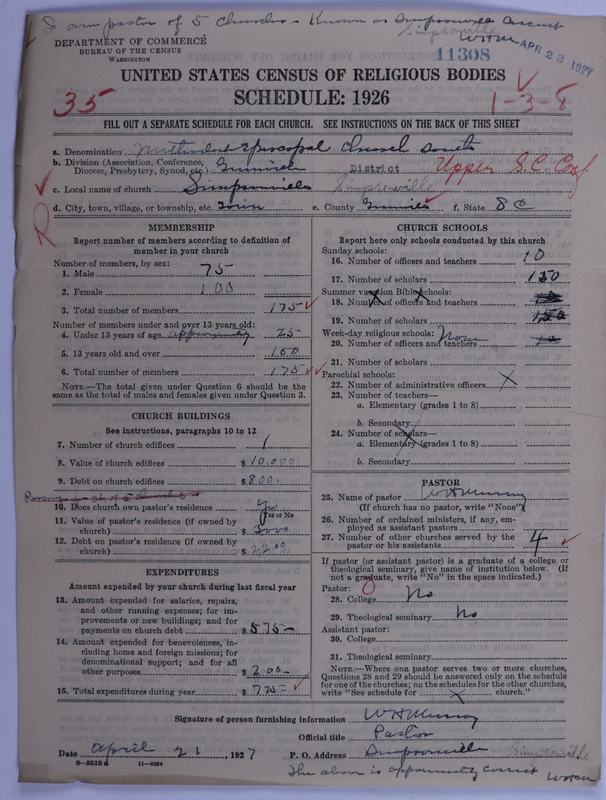 I am pastor of 5 churches - Known as Simpsonville
Simpsonville
WHM
11308
APR 23 1927
DEPARTMENT OF COMMERCE
BUREAU OF THE CENSUS
WASHINGTON
UNITED STATES CENSUS OF RELIGIOUS BODIES
SCHEDULE: 1926
35
1-3-8
FILL OUT A SEPARATE SCHEDULE FOR EACH CHURCH. SEE INSTRUCTIONS ON THE BACK OF THIS SHEET
a. Denomination Methodist Episcopal Church South
b. Division (Association, Conference, Diocese, Presbytery, Synod, etc.) Greenville District Upper S.C. Conf.
c. Local name of church Simpsonville Simpsonville
d. City, town, village, or township, etc. Town e. County Greenville f. State S C
MEMBERSHIP
Report number of members according to definition of
member in your church
Number of members, by sex:
1. Male 75
2. Female 100
3. Total number of members 175
Number of members under and over 13 years old:
4. Under 13 years of age 25
5. 13 years old and over 150
6. Total number of members 175
NOTE.—The total given under Question 6 should be
the same as the total of males and females given under Question 3.
CHURCH BUILDINGS
See instructions, paragraphs 10 to 12
7. Number of church edifices 1
8. Value of church edifices $10,000
9. Debt on church edifices $800
10. Does church own pastor's residence? yes
Yes or No
11. Value of pastor's residence (if owned by
church) $3000
12. Debt on pastor's residence (if owned by
church) $2200
EXPENDITURES
Amount expended by your church during last fiscal year
13. Amount expended for salaries, repairs,
and other running expenses; for im-
provements or new buildings; and for
payments on church debt $575-
14. Amount expended for benevolences, in-
cluding home and foreign missions; for
denominational support; and for all
other purposes $200-
15. Total expenditures during year $775-
CHURCH SCHOOLS
Report here only schools conducted by this church
Sunday schools:
16. Number of officers and teachers 10
17. Number of scholars 150
Summer vacation Bible schools:
18. Number of officers and teachers 10
19. Number of scholars 150
Week-day religious schools: None
20. Number of officers and teachers 10
21. Number of scholars
Parochial schools:
22. Number of administrative officers
23. Number of teachers—
a. Elementary (grades 1 to 8)
b. Secondary
24. Number of scholars—
a. Elementary (grades 1 to 8)
b. Secondary
PASTOR
25. Name of pastor W H Murray
(If church has no pastor, write "None")
26. Number of ordained ministers, if any, em-
ployed as assistant pastors
27. Number of other churches served by the
pastor or his assistants 4
If pastor (or assistant pastor) is a graduate of a college or
theological seminary, give name of institution below. (If
not a graduate, write "No" in the space indicated.)
Pastor:
28. College No
29. Theological seminary No
Assistant pastor:
30. College
31. Theological seminary
NOTE.—Where one pastor serves two or more churches,
Questions 28 and 29 should be answered only on the schedule
for one of the churches; on the schedules for the other churches,
write "See schedule for church."
Signature of person furnishing information W H Murray
Official title Pastor
Date April 21, 1927 P. O. Address Simpsonville Simpsonville
8-5518a 11-9084
The above is approximately correct WHM